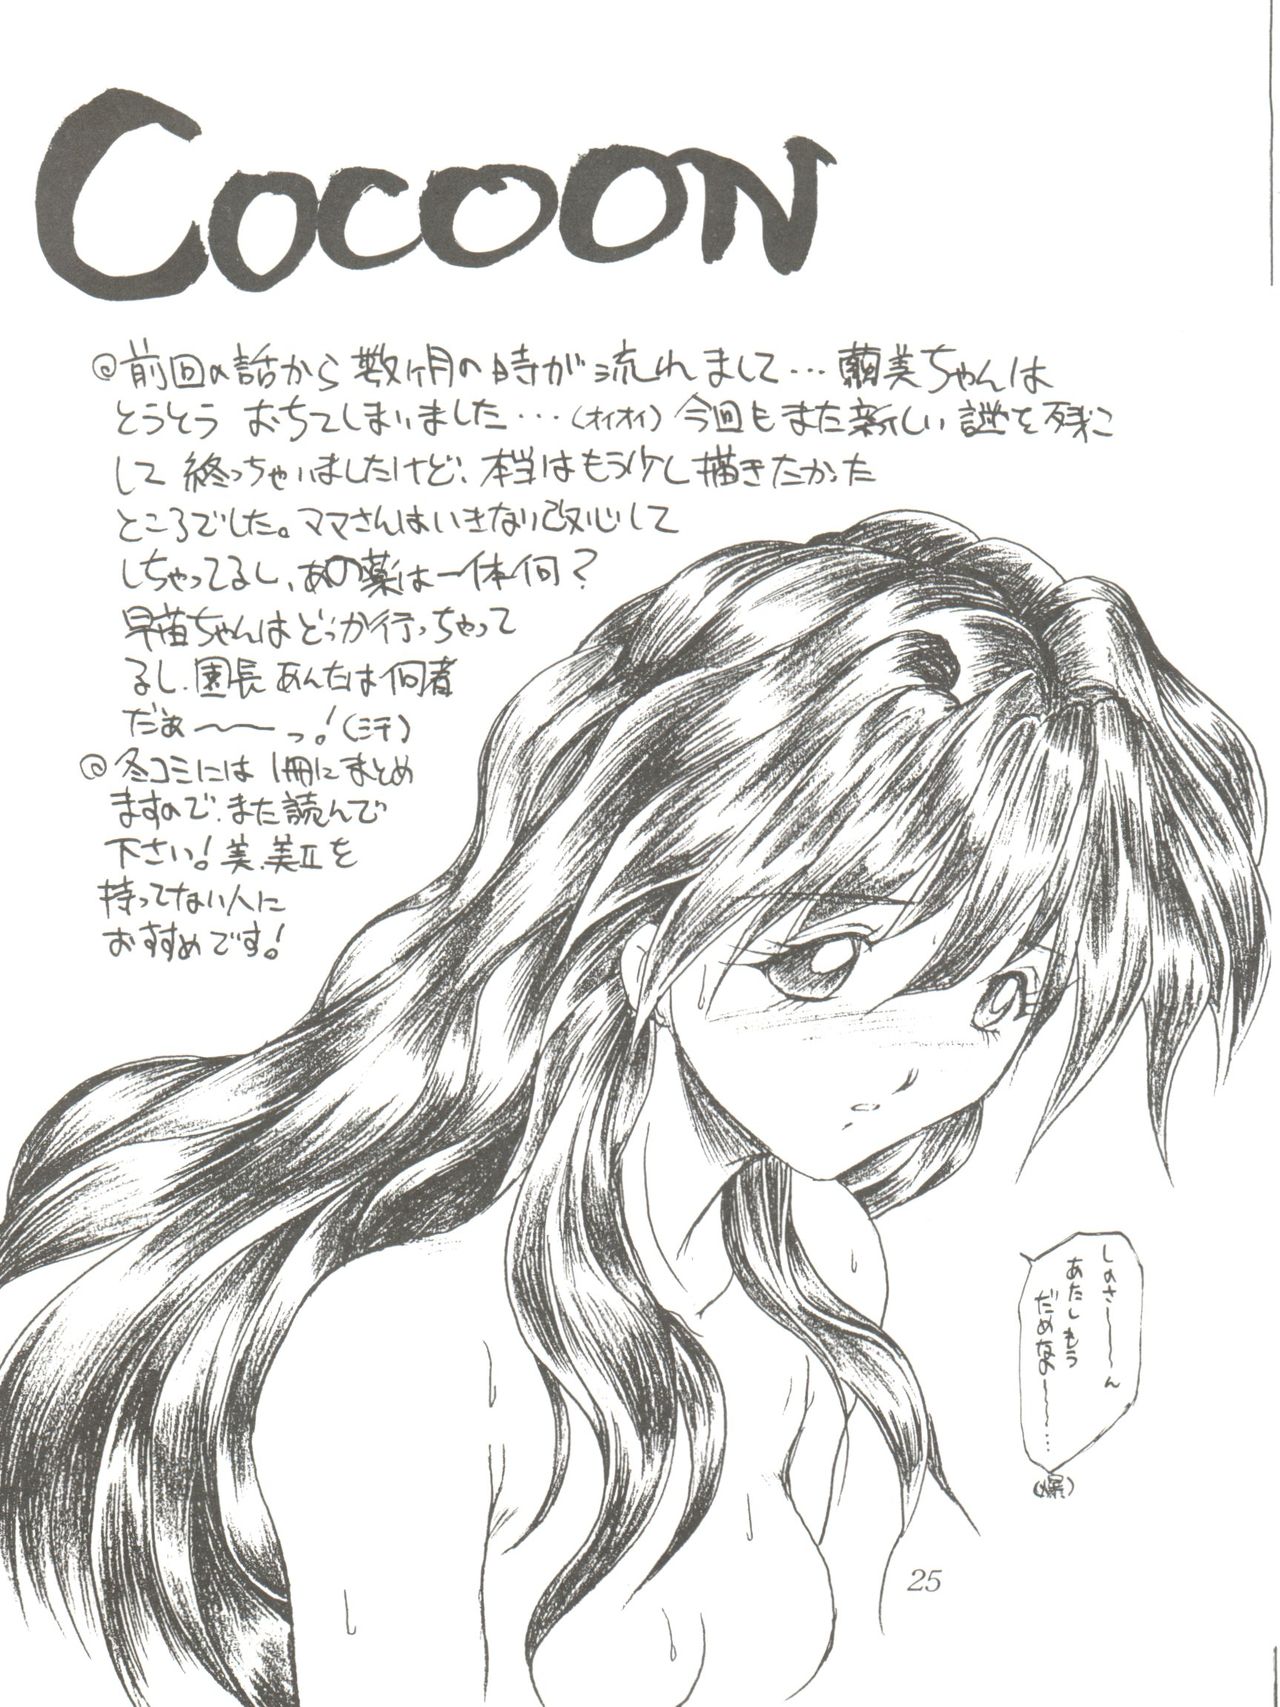 COCOON
@前回の話から数ヶ月の時が流れまして…繭美ちゃんは
とうとう おちてしまいました…(オイオイ) 今回もまた新しい謎を残こ
して 終っちゃいましたけど、本当はもう少し描きたかった
ところでした。ママさんはいきなり改心して
しちゃってるし、あの薬は一体何?
早苗ちゃんはどっか行っちゃって
るし、園長 あんたは何者
だぁ〜〜っ!(汗)
@冬コミには 1冊にまとめ
ますので、また読んで
下さい! 美、美Ⅱを
持ってない人に
おすすめです!
しょさ〜〜ん
あたしもう
だめなの〜〜…
(爆)
25